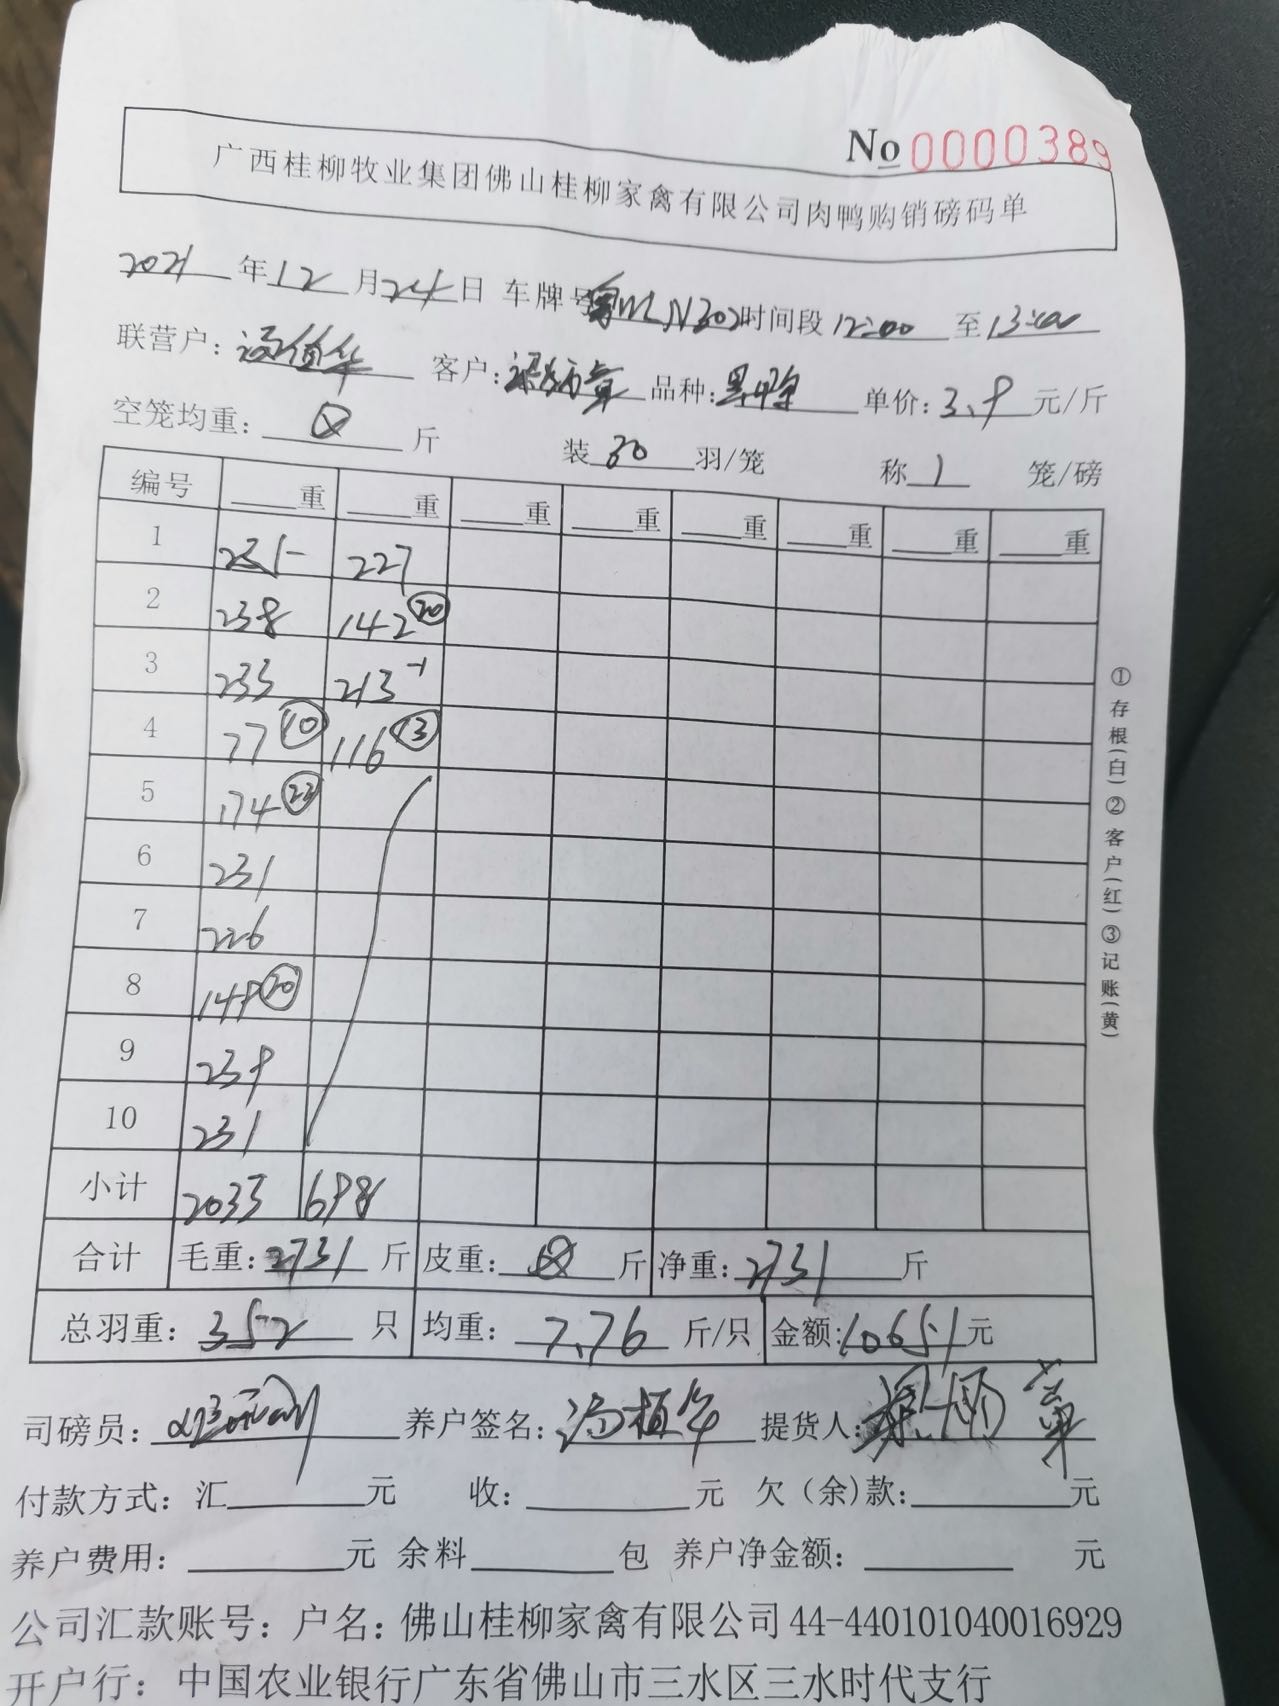 No 0000389
广西桂柳牧业集团佛山桂柳家禽有限公司肉鸭购销磅码单
2021 年 12 月 24 日 车牌号 N302 时间段 12:00 至 13:00
联营户： 客户： 品种： 单价：3.9 元/斤
空笼均重： 斤 装 30 羽/笼 称 1 笼/磅
编号 重 重 重 重 重 重 重 重
1 235 227
2 238 142 ⑳
3 233 213 -1
4 77 ⑩ 116 ⑬
5 174 ㉒
6 231
7 226
8 149 ⑳
9 239
10 231
小计 2033 698
合计 毛重：2731 斤 皮重： 斤 净重：2731 斤
总羽重：352 只 均重：7.76 斤/只 金额：10651 元
司磅员： 养户签名：汤植华 提货人：梁炳章
付款方式：汇 元 收： 元 欠（余）款： 元
养户费用： 元 余料 包 养户净金额： 元
公司汇款账号：户名：佛山桂柳家禽有限公司 44-440101040016929
开户行：中国农业银行广东省佛山市三水区三水时代支行
①存根(白)②客户(红)③记账(黄)